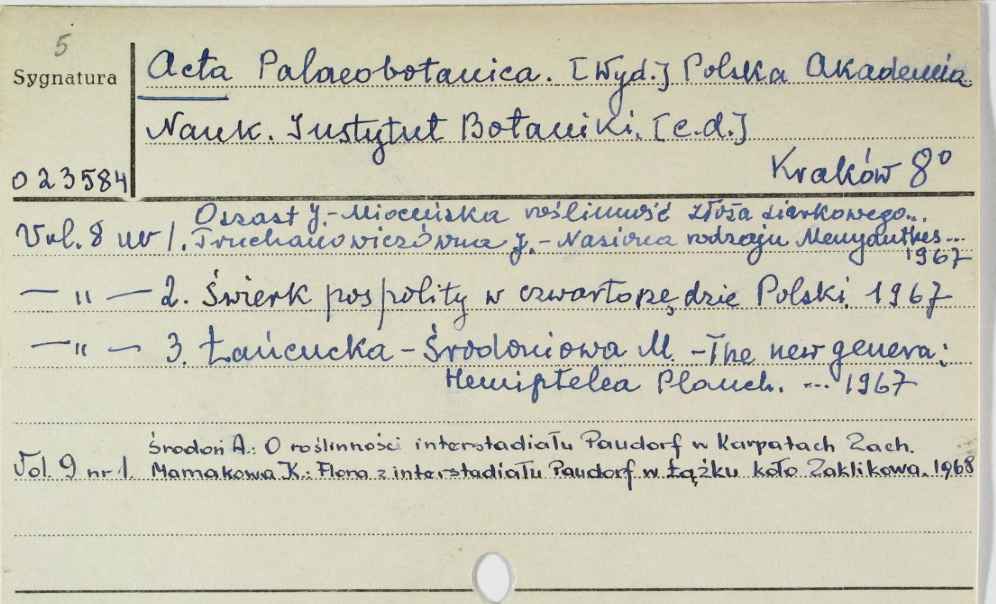 5
Sygnatura
Acta Palaeobotanica. [Wyd.] Polska Akademia
Nauk. Instytut Botaniki. [e.d.]
Kraków 8°
023584
Oszast J. - Mioceńska roślinność złoża siarkowego...
Vol. 8 nr 1. Truchanowiczówna J. - Nasiona rodzaju Menyanthes...
1967
— " — 2. Świerk pospolity w czwartorzędzie Polski. 1967
— " — 3. Łańcucka-Środoniowa M. - The new genera:
Hemiptelea Planch. ... 1967
Środoń A.: O roślinności interstadiału Paudorf w Karpatach Zach.
Vol. 9 nr 1. Mamakowa K.: Flora z interstadiału Paudorf w Łążku koło Zaklikowa. 1968